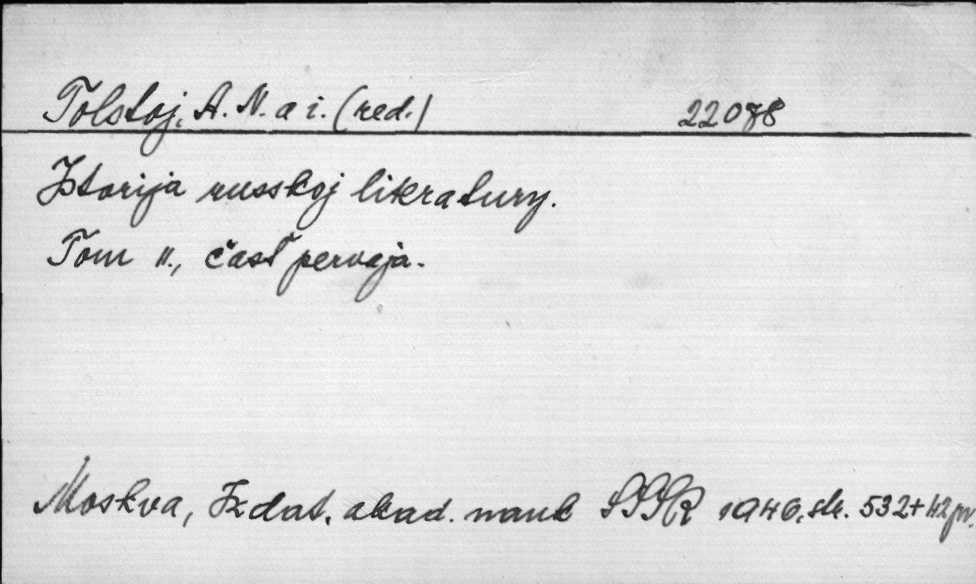 Tolstoj, A. N. a i. (red.) 22078
Istorija russkoj literatury.
Tom II., čast pervaja.
Moskva, Izdat. akad. nauk SSSR 1946, str. 532+